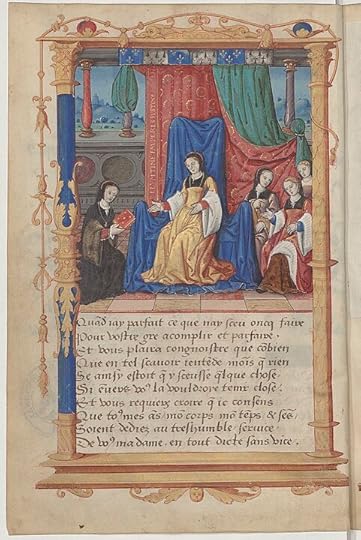 Quãd iay parfait ce que nay sceu oncq̃ faire
Pour vostre gre acomplir et parfaire.
Et vous plaira congnoistre que cõbien
Que en tel scauoir ientēde mois q̃ rien
Se ainsy estoit q̃ y sceusse q̃lque chose
Si ēuers vo9 la vouldroye tenir close.
Et vous requiers croire q̃ ie consens
Que to9 mes ãs mõ corps mõ tēps & sēs
Soient dediez au treshumble seruice.
De vo9 ma dame. en tout dicte sans vice.